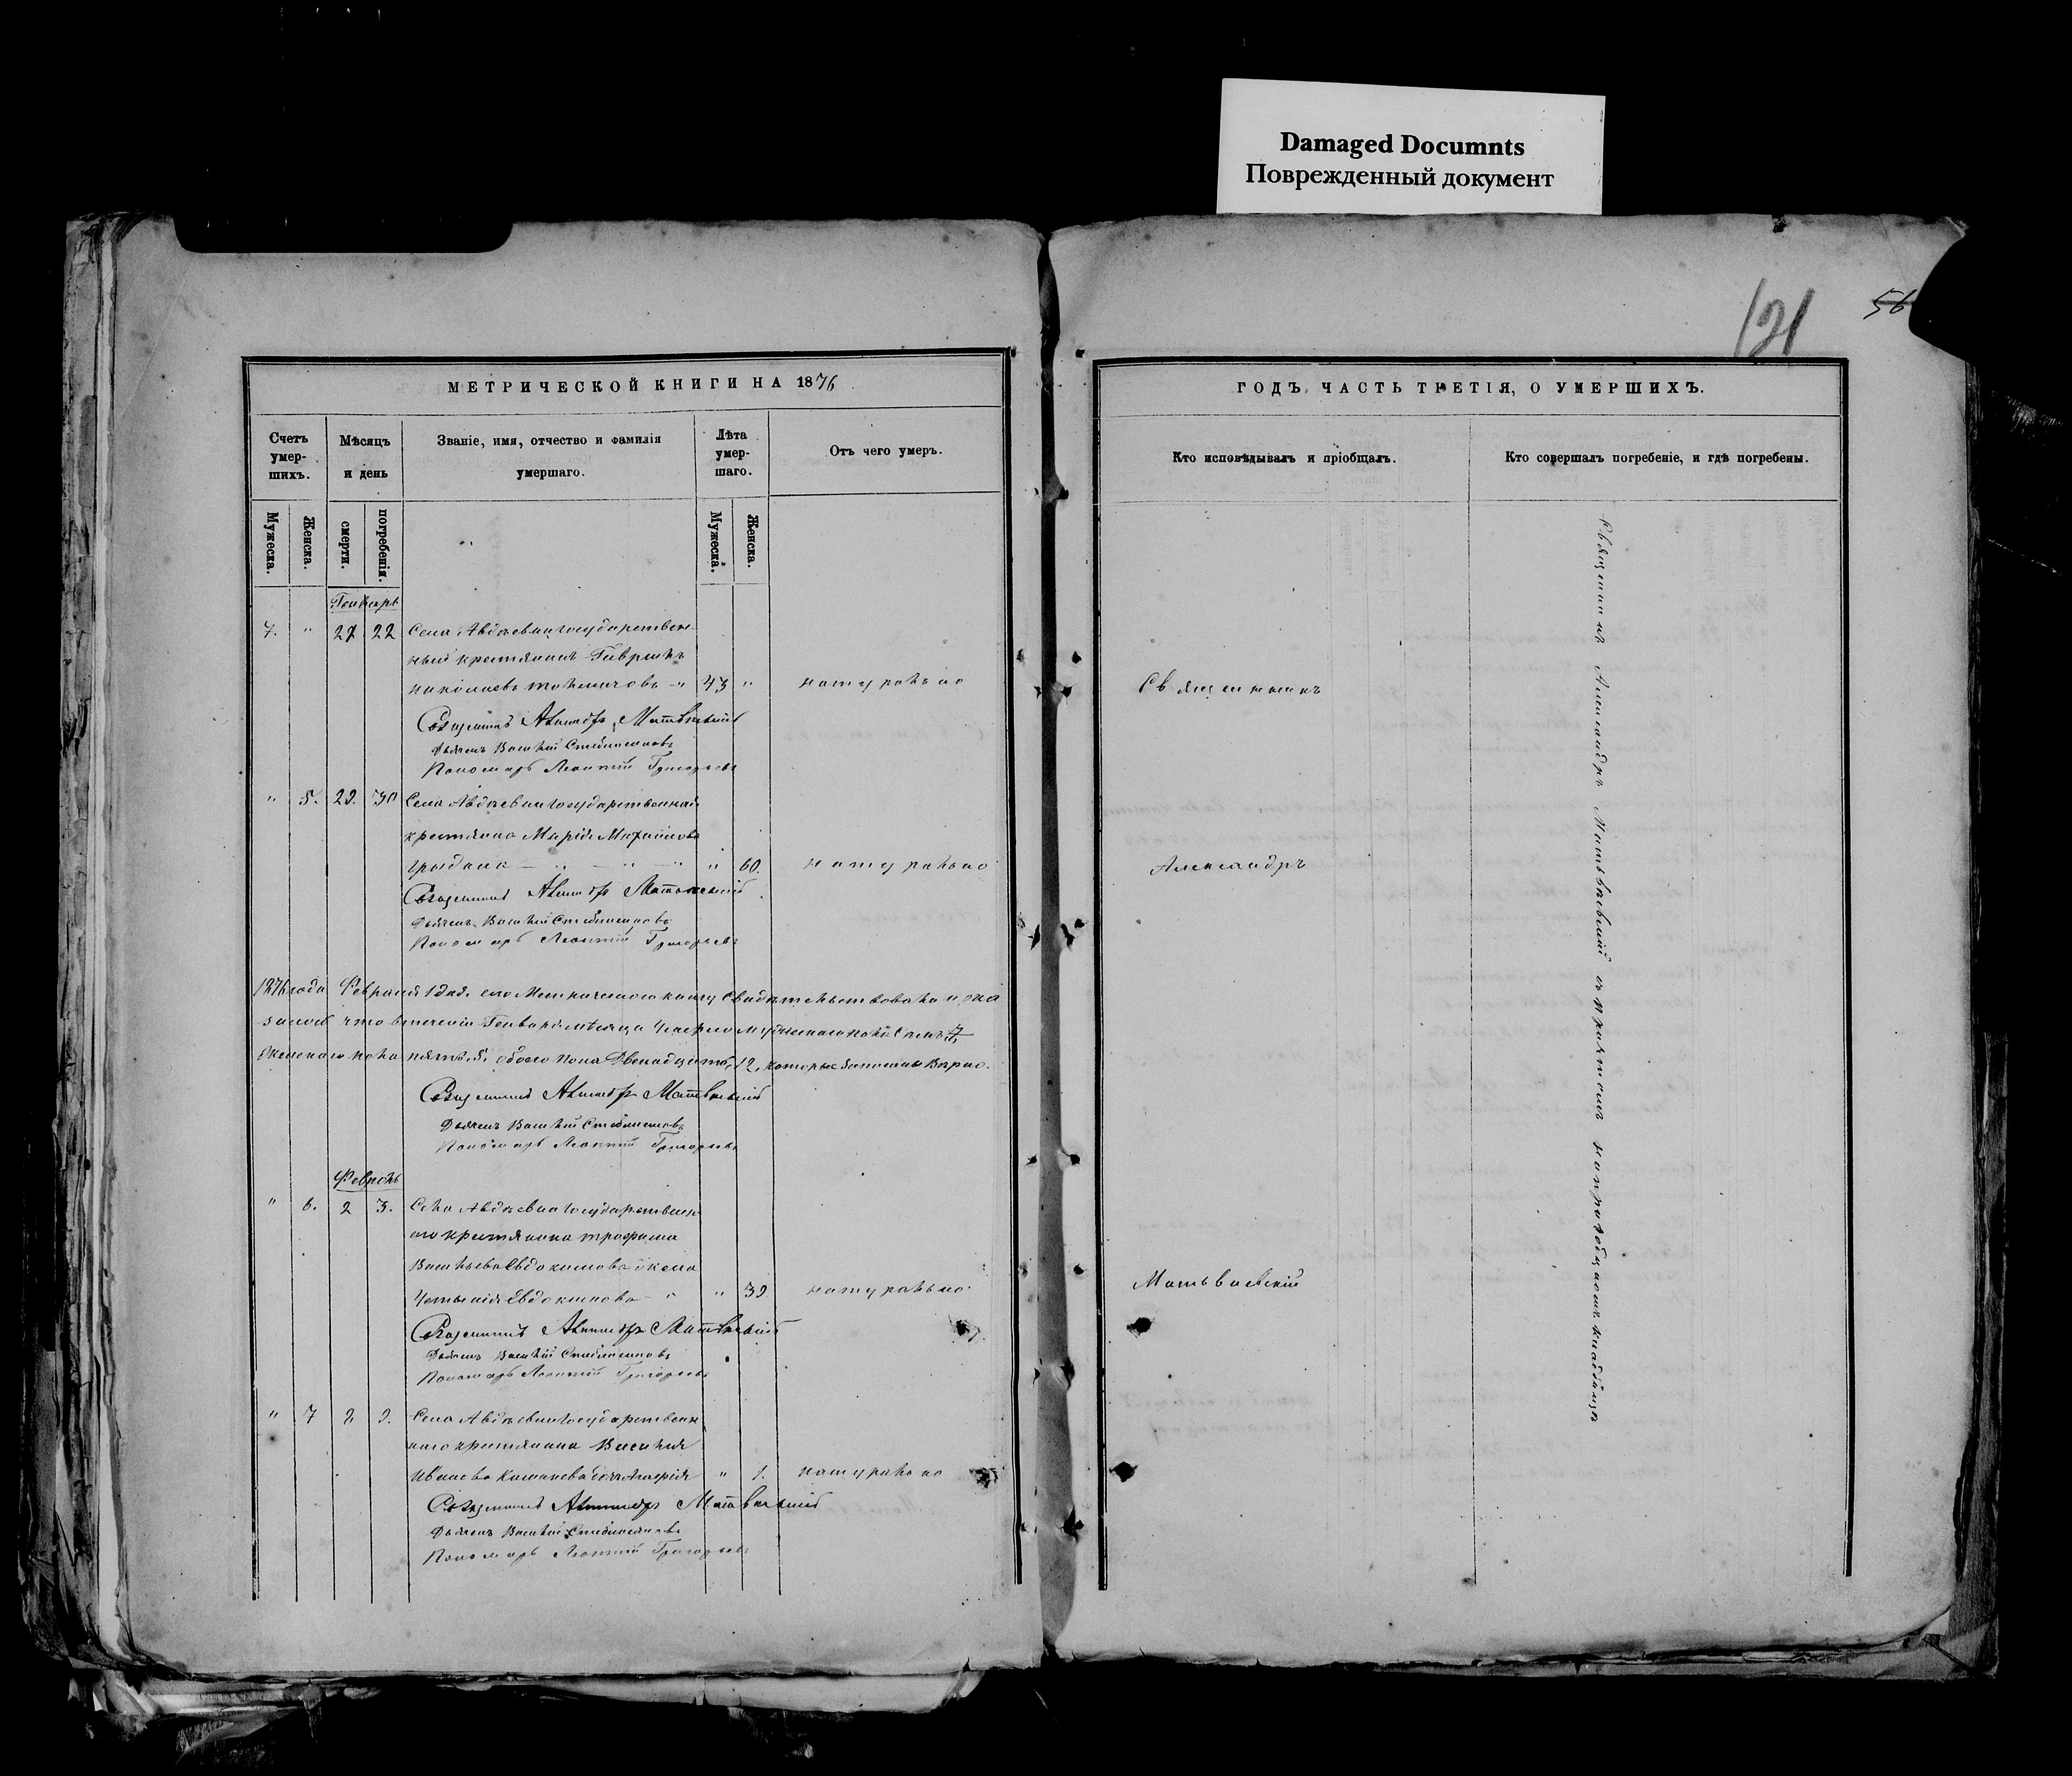 Damaged Documnts
Поврежденный документ
121
56
МЕТРИЧЕСКОЙ КНИГИ НА 1876
ГОДЪ, ЧАСТЬ ТРЕТІЯ, О УМЕРШИХЪ.
Счетъ умер-шихъ.
Мѣсяцъ и день
Званіе, имя, отчество и фамилія умершаго.
Лѣта умер-шаго.
Отъ чего умеръ.
Кто исповѣдывалъ и пріобщалъ.
Кто совершалъ погребеніе, и гдѣ погребены.
Мужеска. Женска. смерти. погребенія. Мужеска. Женска.
Генварь
7. " 22 Села Авдѣевки государствен-
ный крестьянинъ Гаврилъ
Николаевъ " 43 " натурально
Священникъ
Священникъ Александръ Матвѣевскій
Дьячекъ Василій
Пономарь Леонтій Григорьевъ
" 5. 29. 30 Села Авдѣевки государственная
крестьянка Марія Михайлова
" " " " 60. натурально
Александръ
Священникъ Александръ Матвѣевскій
Дьячекъ Василій
Пономарь Леонтій Григорьевъ
1876 года Февраля 1 дня. сію Метрическую книгу свидѣтельствовали и ока
залось что втеченіи Генваря мѣсяца умерло мужескаго пола Семь, 7,
женскаго пола пять, 5, обоего пола Двенадцать, 12, которые записаны Вѣрно.
Священникъ Александръ Матвѣевскій
Дьячекъ Василій
Пономарь Леонтій Григорьевъ
Февраль
" 6. 2 3. Села Авдѣевки государствен-
наго крестьянина Трофима
Васильева Евдокимова жена
Евдокимова " " 39 натурально
Матвѣевскій
Священникъ Александръ Матвѣевскій
Дьячекъ Василій
Пономарь Леонтій Григорьевъ
" 7 9. Села Авдѣевки государствен-
наго крестьянина Василія
Иванова дочь " 1. натурально
Священникъ Александръ Матвѣевскій
Дьячекъ Василій
Пономарь Леонтій Григорьевъ
Священникъ Александръ Матвѣевскій съ причтомъ на приходскомъ кладбищѣ